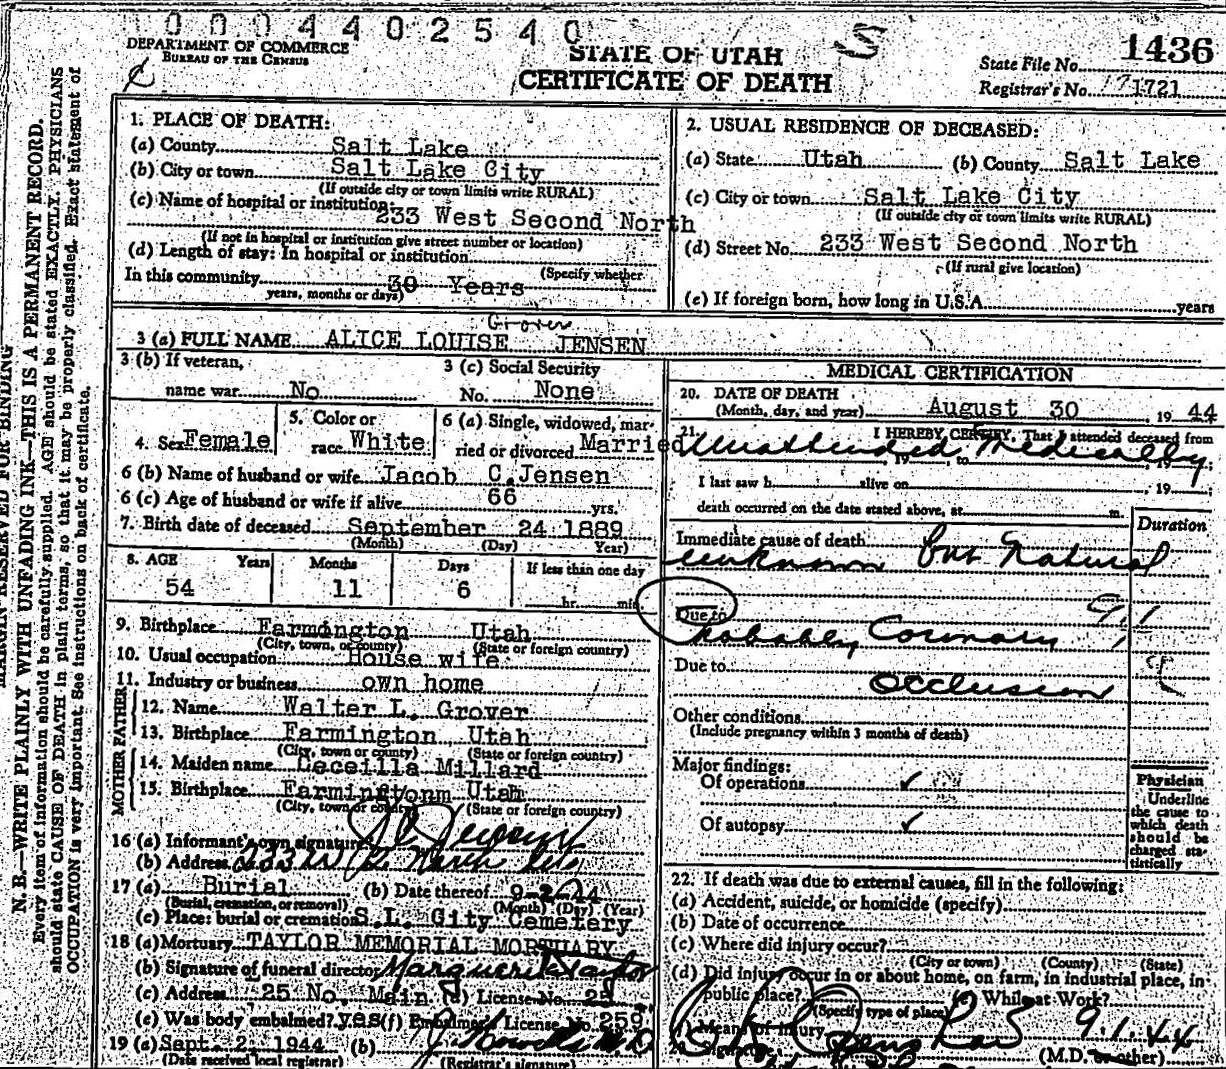 0004402540
DEPARTMENT OF COMMERCE
BUREAU OF THE CENSUS
STATE OF UTAH
CERTIFICATE OF DEATH
State File No. 1436
Registrar's No. 1721
MARGIN RESERVED FOR BINDING
N. B.—WRITE PLAINLY WITH UNFADING INK—THIS IS A PERMANENT RECORD.
Every item of information should be carefully supplied. AGE should be stated EXACTLY. PHYSICIANS
should state CAUSE OF DEATH in plain terms, so that it may be properly classified. Exact statement of
OCCUPATION is very important. See instructions on back of certificate.
1. PLACE OF DEATH:
(a) County Salt Lake
(b) City or town Salt Lake City
(If outside city or town limits write RURAL)
(c) Name of hospital or institution:
233 West Second North
(If not in hospital or institution give street number or location)
(d) Length of stay: In hospital or institution
(Specify whether
In this community 30 Years
years, months or days)
2. USUAL RESIDENCE OF DECEASED:
(a) State Utah (b) County Salt Lake
(c) City or town Salt Lake City
(If outside city or town limits write RURAL)
(d) Street No. 233 West Second North
(If rural give location)
(e) If foreign born, how long in U.S.A. years
Grover
3 (a) FULL NAME ALICE LOUISE JENSEN
3 (b) If veteran,
name war No
3 (c) Social Security
No. None
4. Sex Female
5. Color or
race White
6 (a) Single, widowed, mar-
ried or divorced Married
6 (b) Name of husband or wife Jacob C. Jensen
6 (c) Age of husband or wife if alive 66 yrs.
7. Birth date of deceased September 24 1889
(Month) (Day) Year)
8. AGE Years Months Days If less than one day
54 11 6 hr. min.
9. Birthplace Farmington Utah
(City, town, or county) (State or foreign country)
10. Usual occupation House wife
11. Industry or business own home
FATHER
12. Name Walter L. Grover
13. Birthplace Farmington Utah
(City, town or county) (State or foreign country)
MOTHER
14. Maiden name Leceilla Millard
15. Birthplace Farmingtonm Utah
(City, town or county) (State or foreign country)
16 (a) Informant's own signature Jensen
(b) Address 233 W
17 (a) Burial (b) Date thereof 9-2-44
(Burial, cremation, or removal) (Month) (Day) (Year)
(c) Place: burial or cremation S.L. City Cemetery
18 (a) Mortuary TAYLOR MEMORIAL MORTUARY
(b) Signature of funeral director Marguerite Taylor
(c) Address 25 No. Main (d) License No. 25
(e) Was body embalmed? yes (f) Embalmer License No. 259
19 (a) Sept. 2, 1944 (b)
(Date received local registrar) (Registrar's signature)
MEDICAL CERTIFICATION
20. DATE OF DEATH
(Month, day, and year) August 30 1944
21. I HEREBY CERTIFY, That I attended deceased from
Unattended Medically
, 19 , to , 19
I last saw h alive on , 19
death occurred on the date stated above, at m.
Duration
Immediate cause of death
unknown but Natural
Due to
Probably Coronary
Due to
Occlusion
Other conditions
(Include pregnancy within 3 months of death)
Major findings:
Of operations ✓
Of autopsy ✓
Physician
Underline
the cause to
which death
should be
charged sta-
tistically
22. If death was due to external causes, fill in the following:
(a) Accident, suicide, or homicide (specify)
(b) Date of occurrence
(c) Where did injury occur?
(City or town) (County) (State)
(d) Did injury occur in or about home, on farm, in industrial place, in
public place? (e) While at Work?
(Specify type of place)
(f) Means of injury 9.1.44
(M.D. or other)